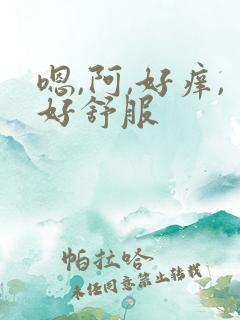 嗯,阿,好痒,
好舒服
帕拉哈
未经同意禁止转载